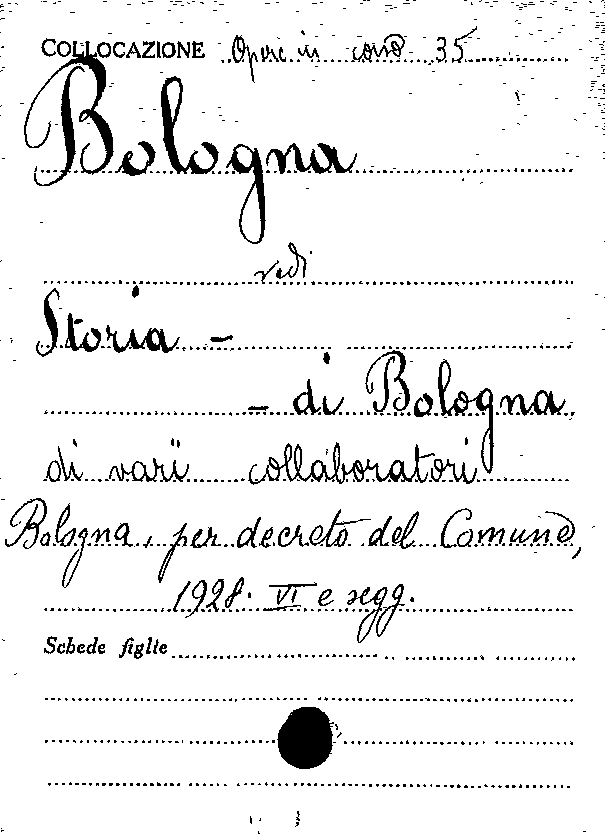 COLLOCAZIONE Opere in cons 35
Bologna
vedi
Storia -
- di Bologna
di varii collaboratori
Bologna, per decreto del Comune,
1928. VI e segg.
Schede figlie